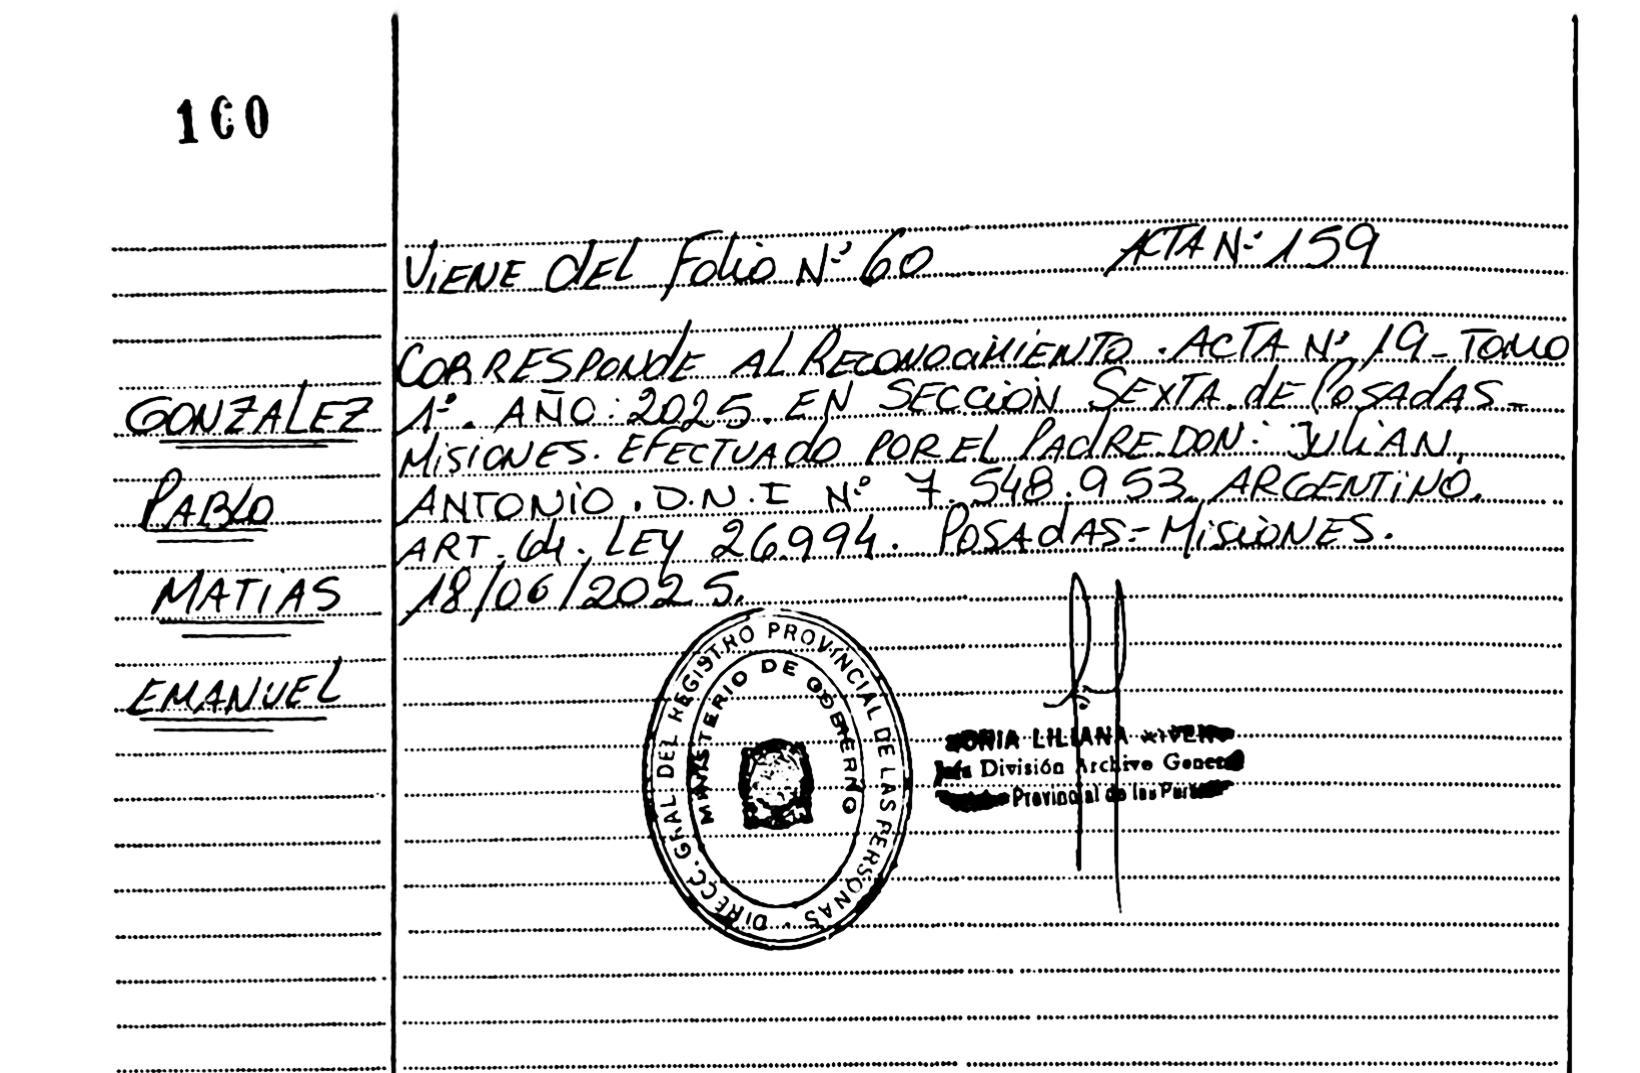 160
VIENE DEL FOLIO Nº 60 ACTA Nº 159
CORRESPONDE AL RECONOCIMIENTO. ACTA Nº 19 - TOMO
GONZALEZ
1º. AÑO: 2025. EN SECCION SEXTA. DE POSADAS -
MISIONES. EFECTUADO POR EL PADRE. DON: JULIAN,
PABLO
ANTONIO. D.N.I Nº 7.548.953. ARGENTINO.
ART. 64. LEY 26994. POSADAS = MISIONES.
MATIAS
18/06/2025.
EMANUEL
DIRECC. GRAL DEL REGISTRO PROVINCIAL DE LAS PERSONAS
MINISTERIO DE GOBIERNO
LILIANA
División Archivo General
Provincial de las